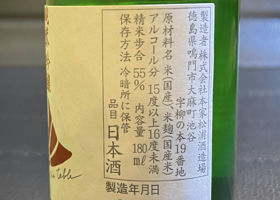 製造者 株式会社本家松浦酒造場
徳島県鳴門市大麻町池谷
字柳の本19番地
原材料名 米(国産)、米麹(国産米)
アルコール分 15度以上16度未満
精米歩合 55% 内容量 180ml
保存方法 冷暗所に保管
品目 日本酒
製造年月日
Table